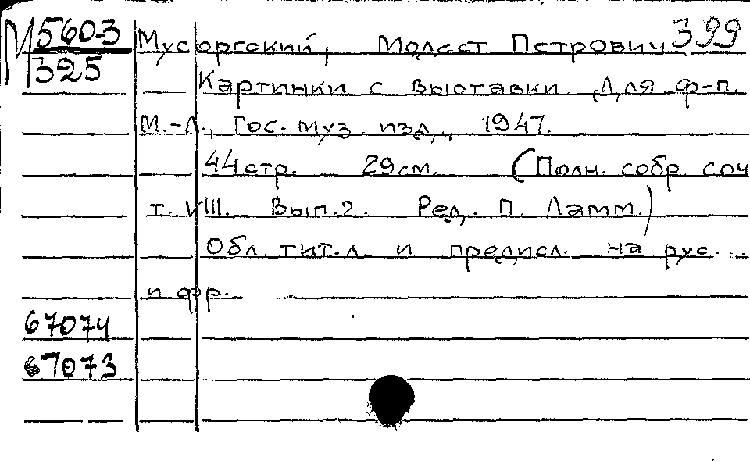 М 5603 Мусоргский, Модест Петрович 399
325 Картинки с выставки. Для ф-п.
М.-Л., Гос. муз. изд., 1947.
44 стр. 29 см. (Полн. собр. соч
т. VIII. Вып. 2. Ред. П. Ламм.)
Обл. тит. л. и предисл. на рус.
и фр.
67074
67073